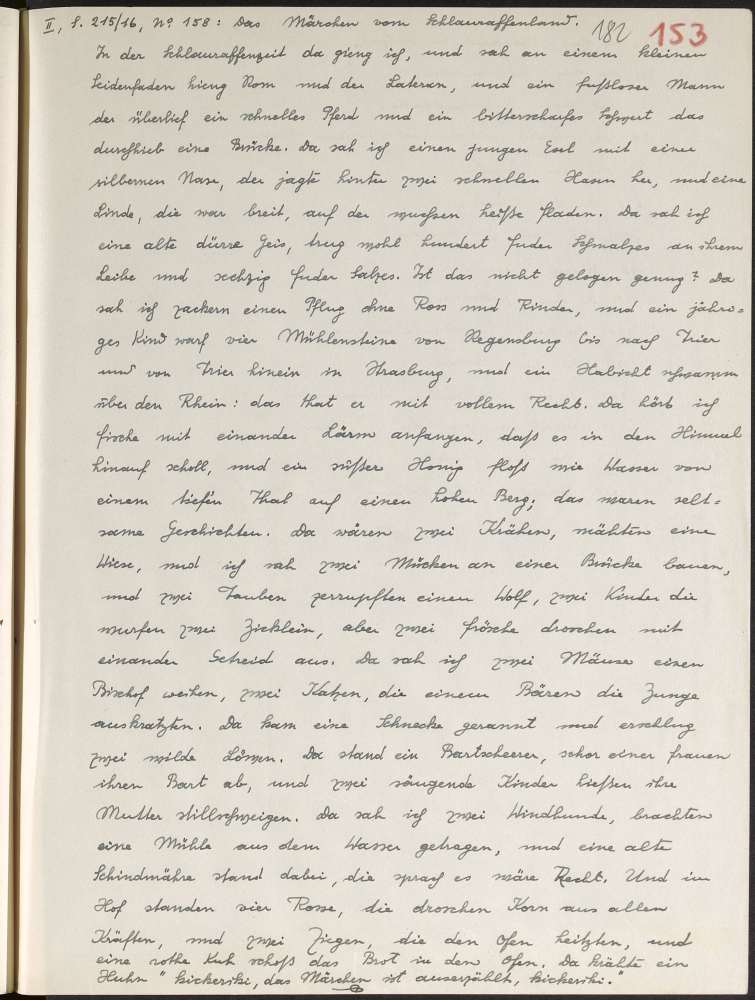 II, S. 215/16, Nº 158: Das Märchen vom Schlauraffenland.
182 153
In der Schlauraffenzeit da gieng ich, und sah an einem kleinen
Seidenfaden hieng Rom und der Lateran, und ein fußloser Mann
der überlief ein schnelles Pferd und ein bitterscharfes Schwert das
durchhieb eine Brücke. Da sah ich einen jungen Esel mit einer
silbernen Nase, der jagte hinter zwei schnellen Hasen her, und eine
Linde, die war breit, auf der wuchsen heiße Fladen. Da sah ich
eine alte dürre Geis, trug wohl hundert Fuder Schmalzes an ihrem
Leibe und sechzig Fuder Salzes. Ist das nicht gelogen genug? Da
sah ich zackern einen Pflug ohne Ross und Rinder, und ein jähri=
ges Kind warf vier Mühlensteine von Regensburg bis nach Trier
und von Trier hinein in Strasburg, und ein Habicht schwamm
über den Rhein: das that er mit vollem Recht. Da hört ich
Fische mit einander Lärm anfangen, daß es in den Himmel
hinauf scholl, und ein süßer Honig floß wie Wasser von
einem tiefen Thal auf einen hohen Berg; das waren selt=
same Geschichten. Da wären zwei Krähen, mähten eine
Wiese, und ich sah zwei Mücken an einer Brücke bauen,
und zwei Tauben zerrupften einen Wolf, zwei Kinder die
wurfen zwei Zicklein, aber zwei Frösche droschen mit
einander Getreid aus. Da sah ich zwei Mäuse einen
Bischof weihen, zwei Katzen, die einem Bären die Zunge
auskratzten. Da kam eine Schnecke gerannt und erschlug
zwei wilde Löwen. Da stand ein Bartscheerer, schor einer Frauen
ihren Bart ab, und zwei säugende Kinder hießen ihre
Mutter stillschweigen. Da sah ich zwei Windhunde, brachten
eine Mühle aus dem Wasser getragen, und eine alte
Schindmähre stand dabei, die sprach es wäre Recht. Und im
Hof standen vier Rosse, die droschen Korn aus allen
Kräften, und zwei Ziegen, die den Ofen heitzten, und
eine rothe Kuh schoß das Brot in den Ofen. Da krähte ein
Huhn "kickeriki, das Märchen ist auserzählt, kickeriki."